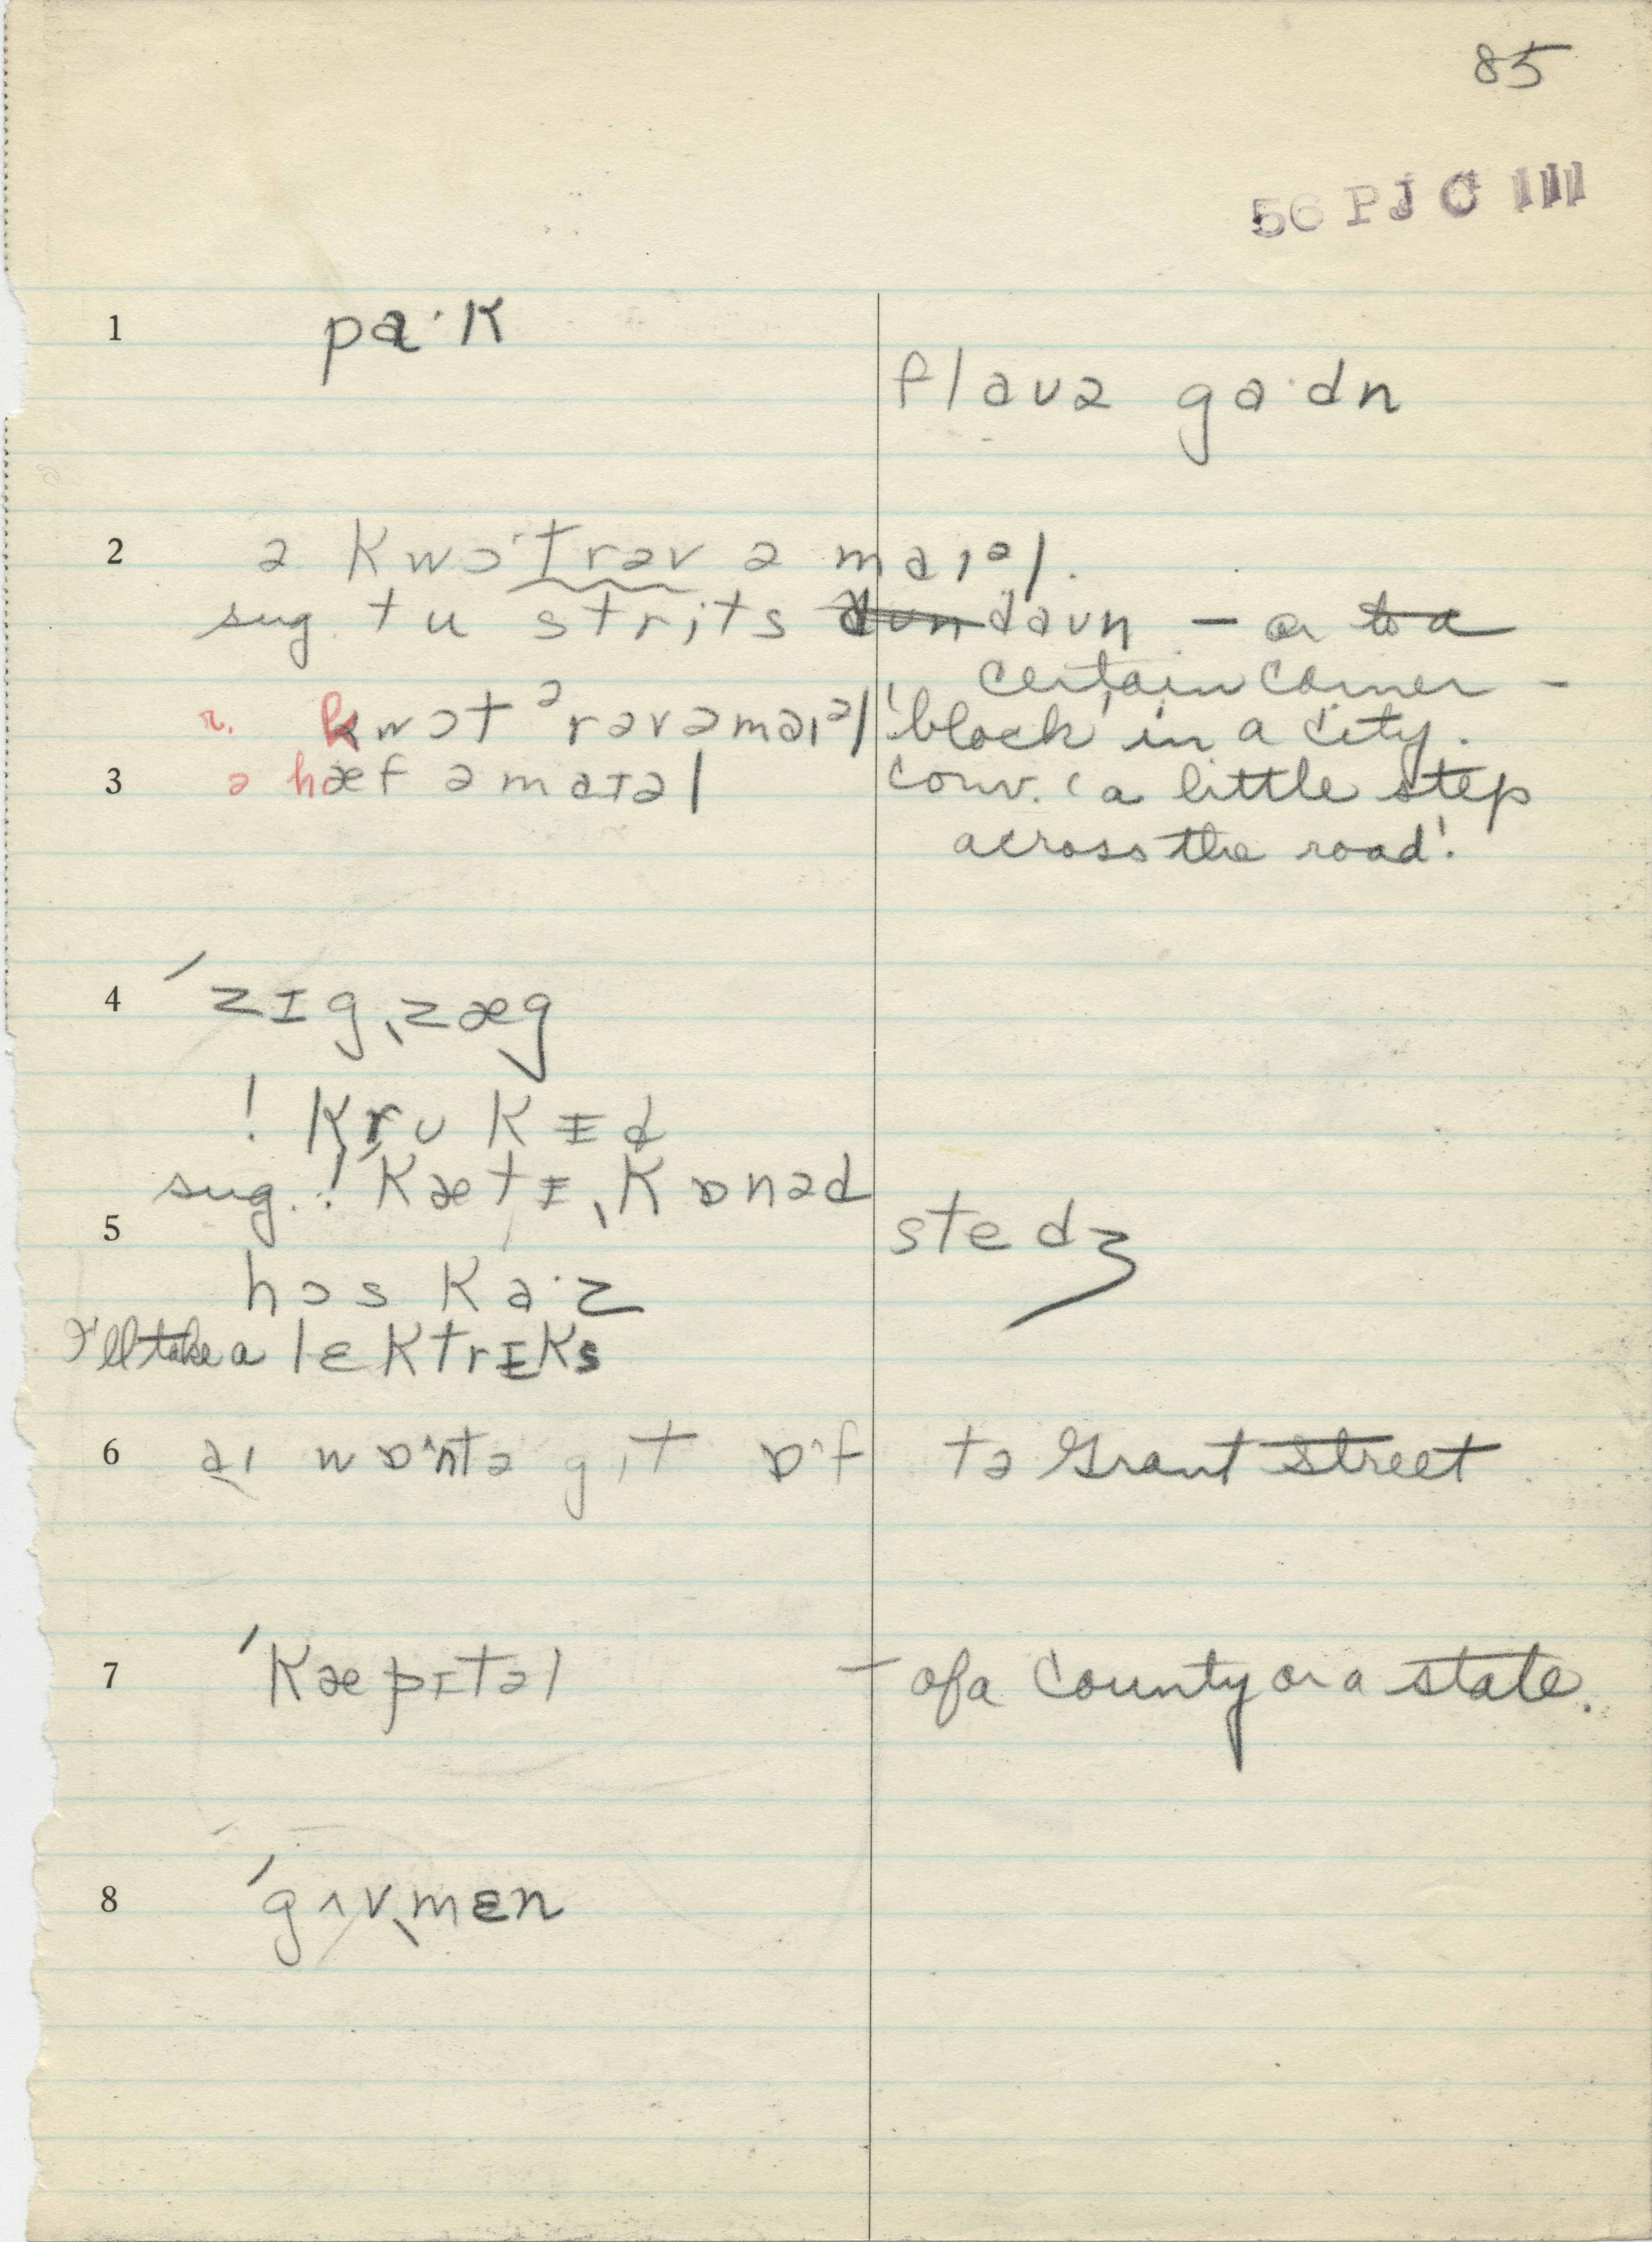 85
56 PJC III
1 pa·k
flaʊə ga·dn
2 ə kwɔ·trəv ə maɪᵊl.
sug. tu strits daʊn — or to a
certain corner —
r. kwɔtᵊrəvəmaɪᵊl 'block' in a city.
3 ə hæf ə maɪəl conv. 'a little step
across the road'.
4 ˈzɪgˌzæg
! krʊkɪd
sug. ! kætɪˌkɒnəd
5 stedʒ
hɔs ka·z
I'll take a lɛktrɪks
6 aɪ wɒ·ntə gɪt ɒ·f tə Grant Street
7 ˈkæpɪtəl — of a county or a state.
8 ˈgʌvˌmɛn